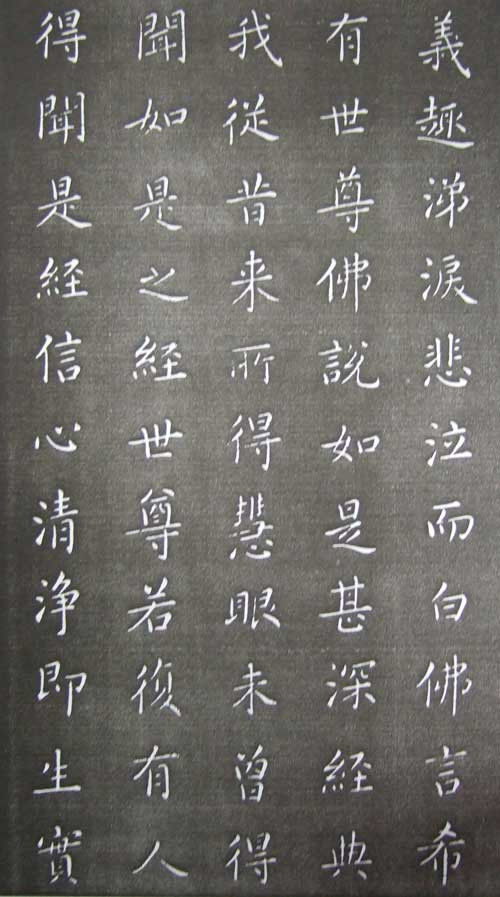 義趣涕淚悲泣而白佛言希
有世尊佛說如是甚深經典
我從昔来所得慧眼未曾得
聞如是之經世尊若復有人
得聞是經信心清淨即生實